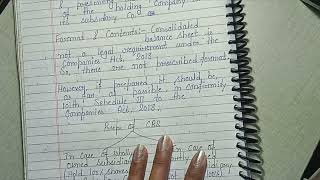 of the holding Company &
its subsidiary Co.s
Format & Contents:- Consolidated
balance sheet is
not a legal requirement under the
Companies Act, 2013
So, there are not prescribed format
However if prepared, it should be,
as far as possible in conformity
with Schedule III to the
Companies Act, 2013.
Prep. of CBS
In case of wholly In case of
owned subsidiary